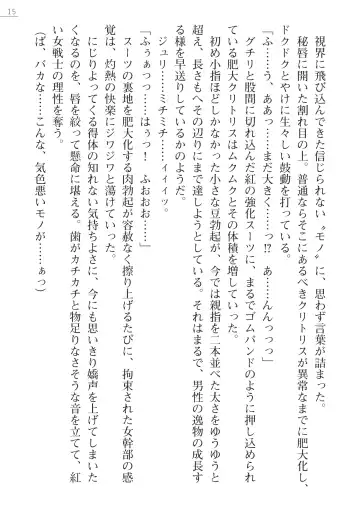 15
視界に飛び込んできた信じられない〝モノ〟に、思わず言葉が詰まった。
秘唇に開いた割れ目の上。普通ならそこにあるべきクリトリスが異常なまでに肥大化し、
ドクドクとやけに生々しい鼓動を打っている。
「ふ……う、ああっ……まだ大きく……っ!? あ……んんっっっ」
グチリと股間に切れ込んだ紅の強化スーツに、まるでゴムバンドのように押し込められ
ている肥大クリトリスはムクムクとその体積を増していった。
初め小指ほどしかなかった小さな豆勃起が、今では親指を二本並べた太さをゆうゆうと
超え、長さもへその辺りにまで達しようとしている。それはまるで、男性の逸物の成長す
る様を早送りしているかのようだ。
ジュリ……ミチミチ……ィィィッ。
「ふぅぁっっ……はぅっ! ふおおお……」
スーツの裏地を肥大化する肉勃起が容赦なく擦り上げるたびに、拘束された女幹部の感
覚は、灼熱の快楽にジワジワと蕩けていった。
にじりよってくる得体の知れない気持ちよさに、今にも思いきり嬌声を上げてしまいた
くなるのを、唇を絞って懸命に堪える。歯がカチカチと物足りなさそうな音を立てて、紅
い女戦士の理性を奪う。
(ば、バカな……こんな、気色悪いモノが……ぁっ)